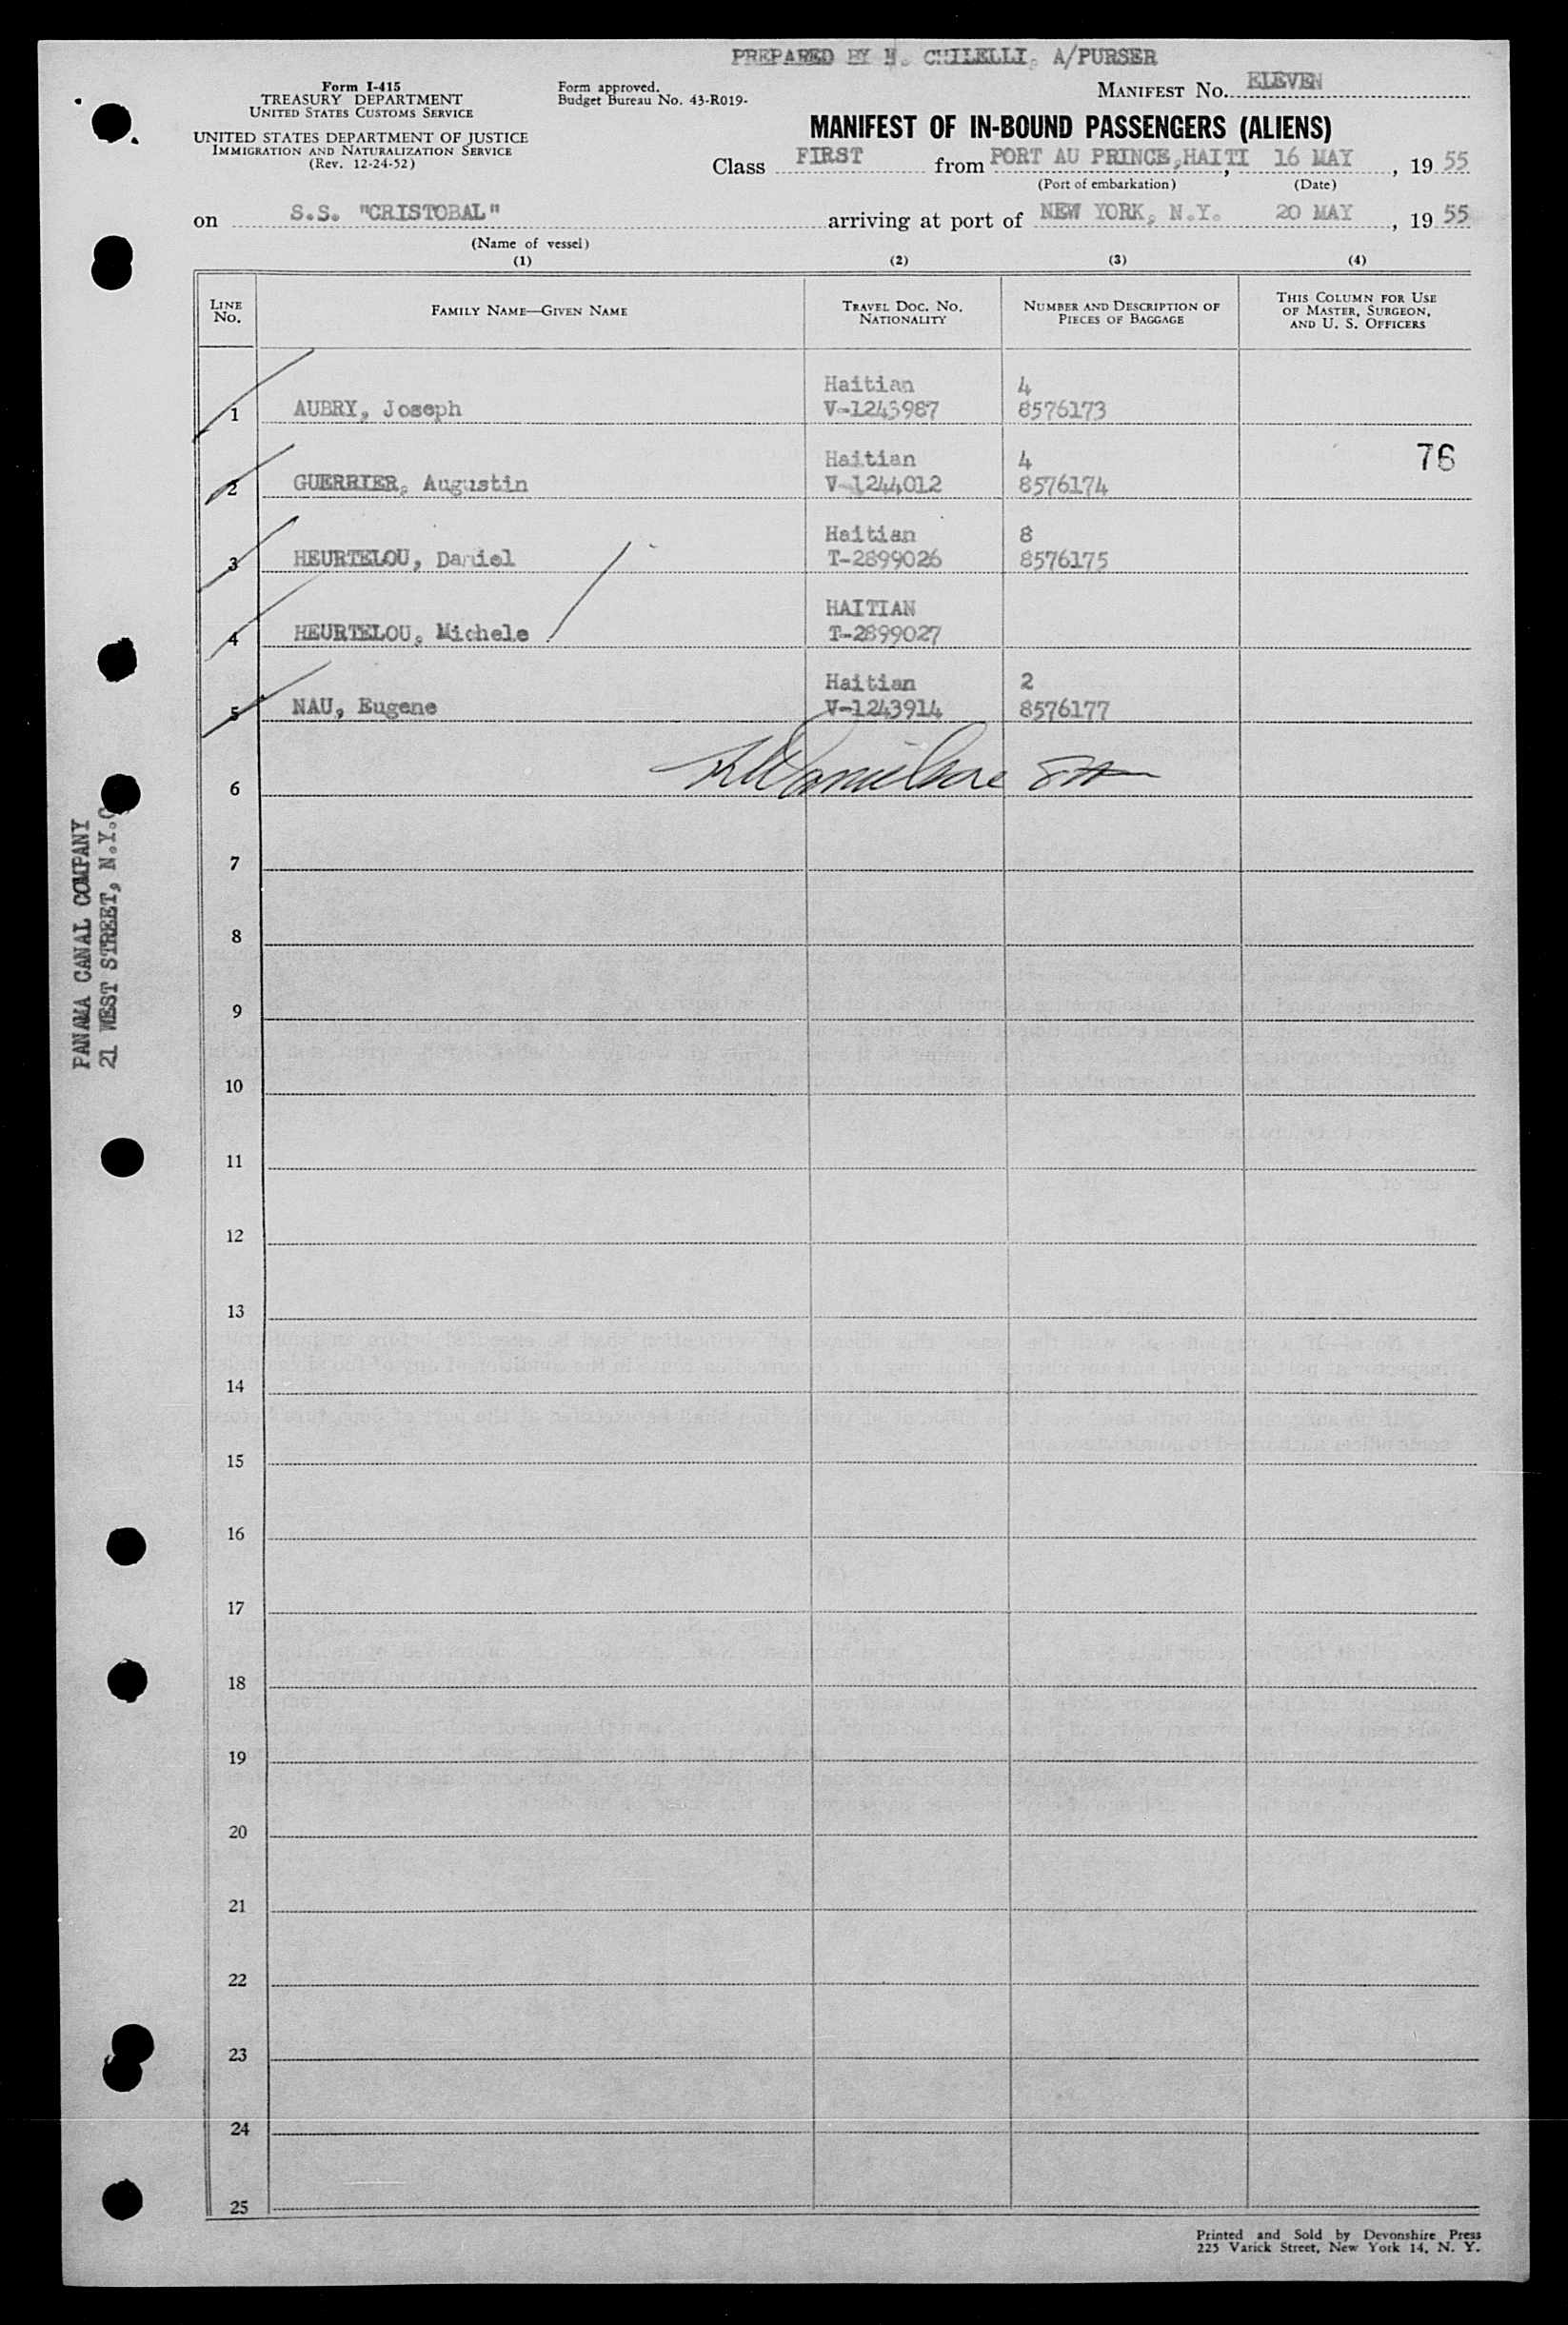 PREPARED BY N. CHILELLI, A/PURSER
Form I-415
TREASURY DEPARTMENT
UNITED STATES CUSTOMS SERVICE
UNITED STATES DEPARTMENT OF JUSTICE
IMMIGRATION AND NATURALIZATION SERVICE
(Rev. 12-24-52)
Form approved.
Budget Bureau No. 43-R019-
MANIFEST No. ELEVEN
MANIFEST OF IN-BOUND PASSENGERS (ALIENS)
Class FIRST from PORT AU PRINCE, HAITI, 16 MAY, 19 55
(Port of embarkation) (Date)
on S.S. "CRISTOBAL" arriving at port of NEW YORK, N.Y. 20 MAY, 19 55
(Name of vessel)
(1) (2) (3) (4)
LINE No. FAMILY NAME—GIVEN NAME TRAVEL DOC. NO. NATIONALITY NUMBER AND DESCRIPTION OF PIECES OF BAGGAGE THIS COLUMN FOR USE OF MASTER, SURGEON, AND U. S. OFFICERS
Haitian 4
1 AUBRY, Joseph V-1243987 8576173
Haitian 4 76
2 GUERRIER, Augustin V-1244012 8576174
Haitian 8
3 HEURTELOU, Daniel T-2899026 8576175
HAITIAN
4 HEURTELOU, Michele T-2899027
Haitian 2
5 NAU, Eugene V-1243914 8576177
6
7
8
9
10
11
12
13
14
15
16
17
18
19
20
21
22
23
24
25
PANAMA CANAL COMPANY
21 WEST STREET, N.Y.C
Printed and Sold by Devonshire Press
225 Varick Street, New York 14, N. Y.